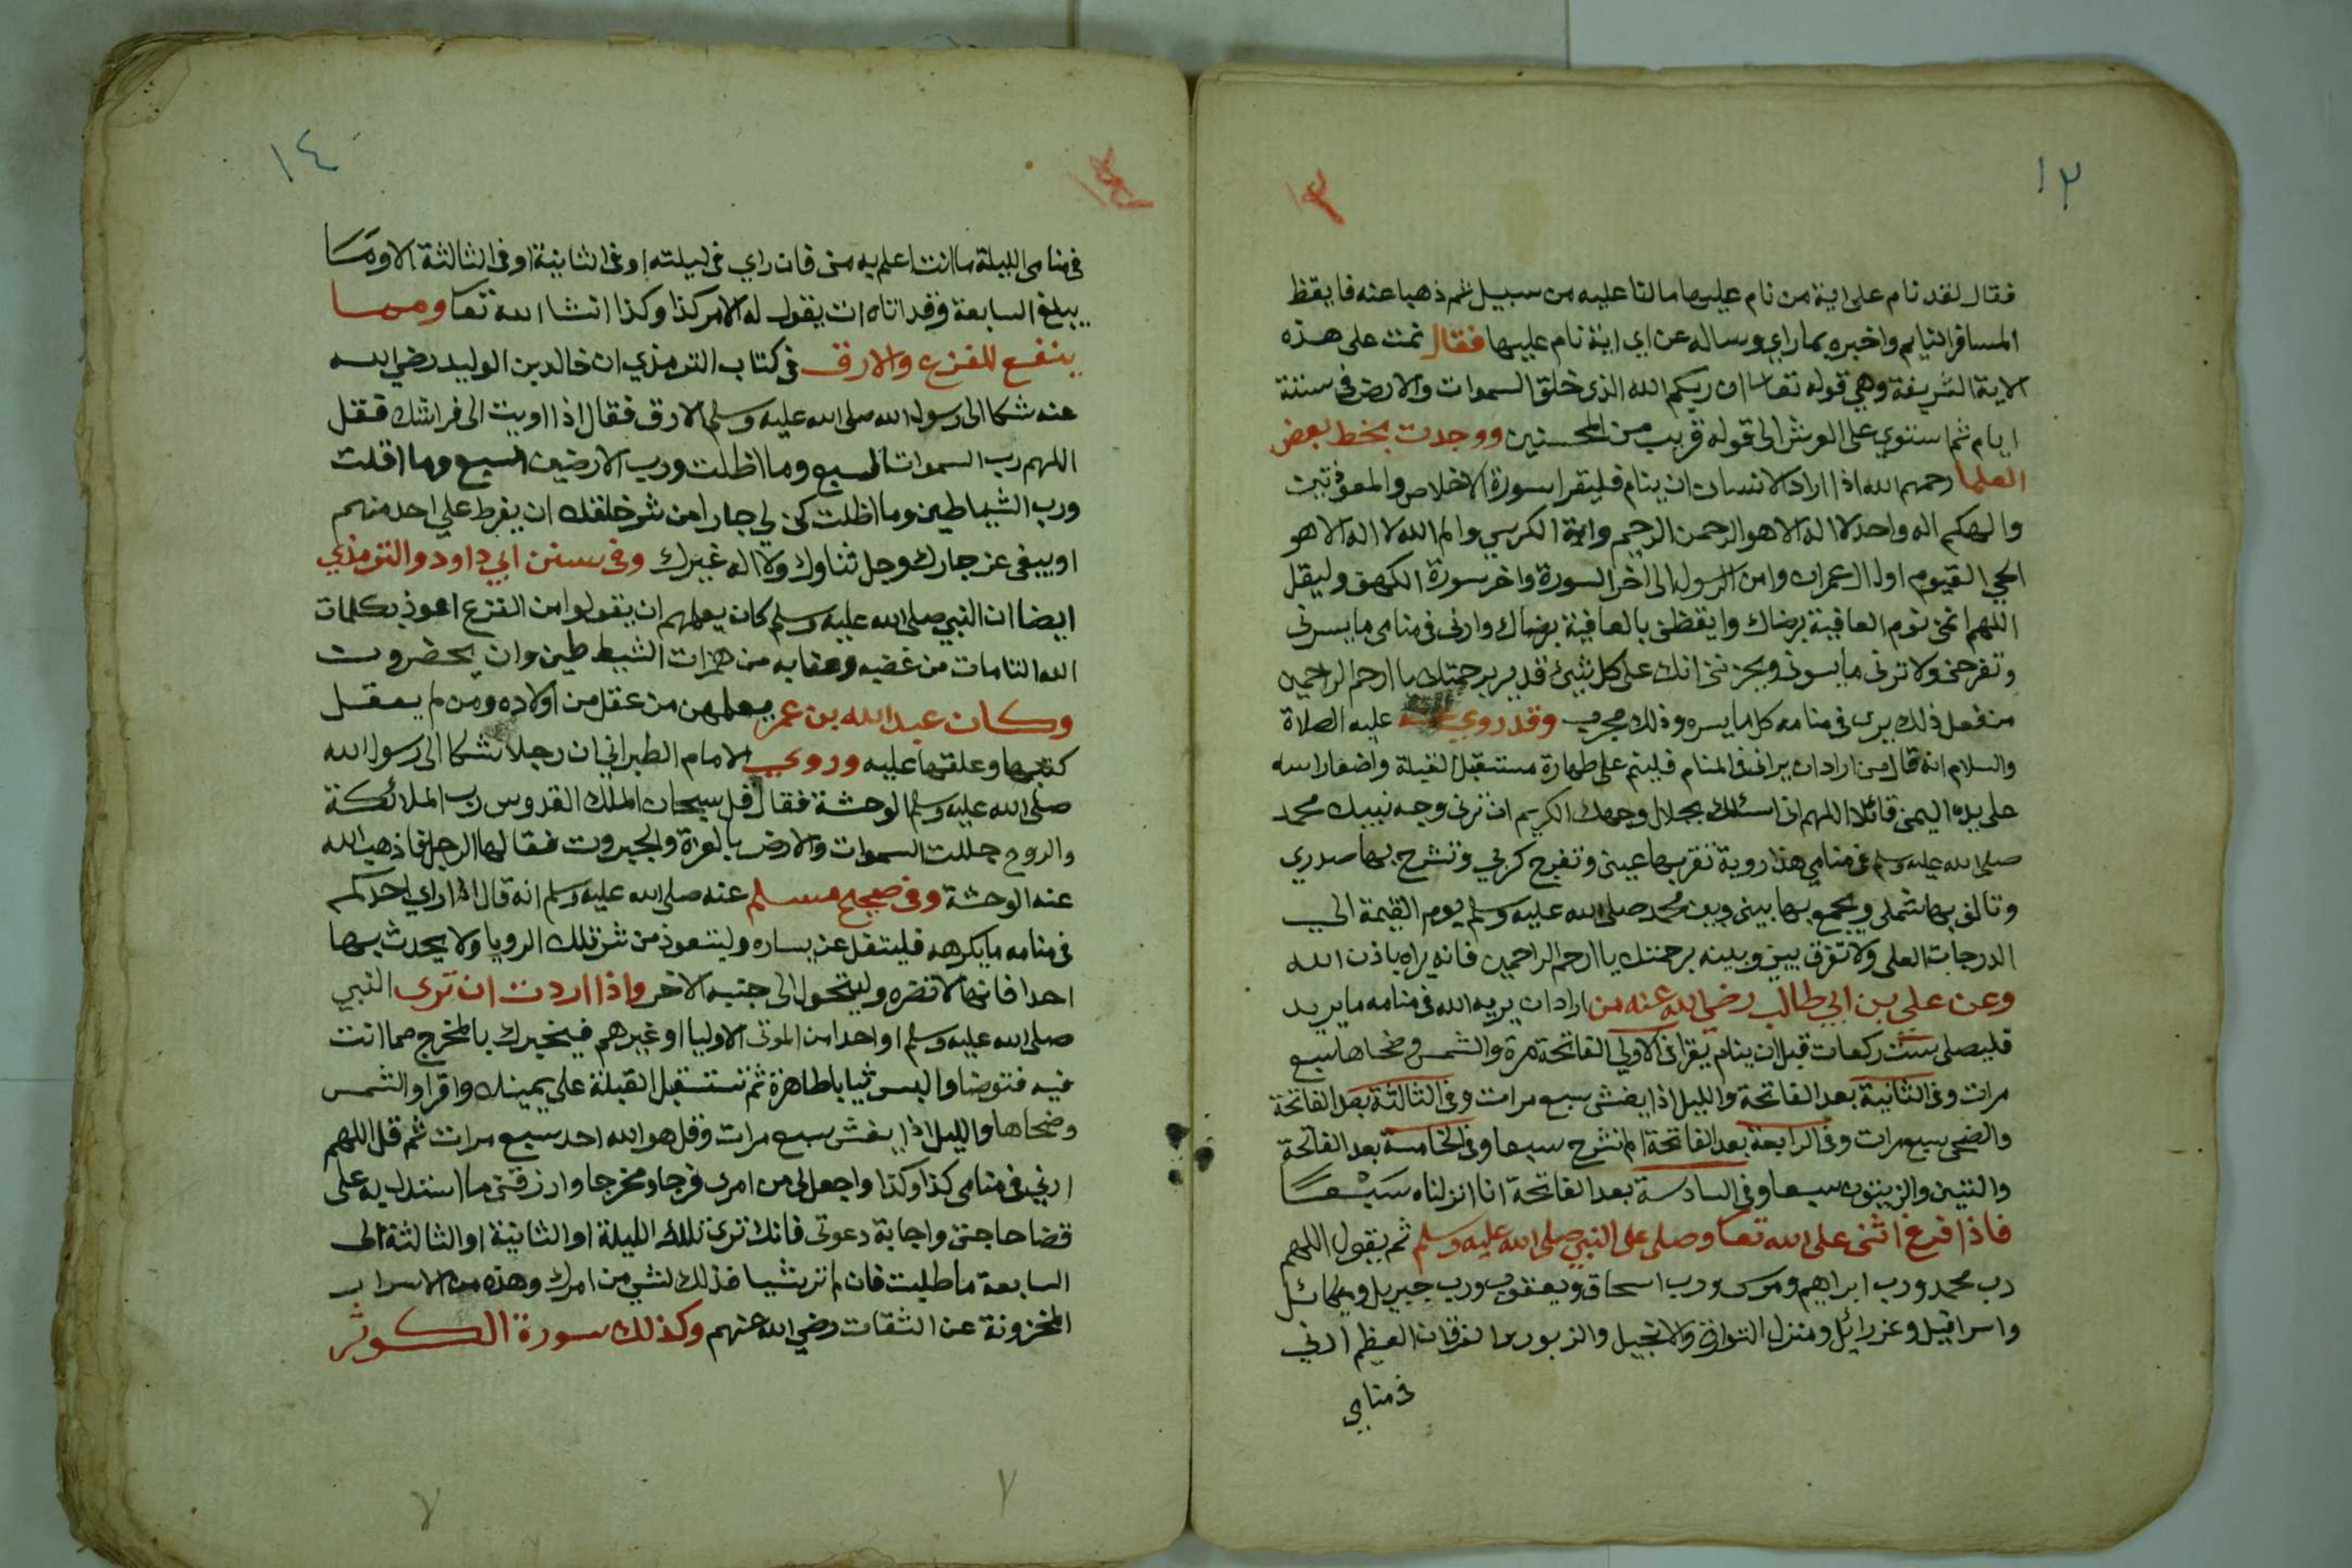 ١٣
١٣
فقال لقد نام على اية من نام عليها مالنا عليه من سبيل ثم ذهبا عنه فايقظ
المسافر النايم واخبره بما راي وساله عن اي اية نام عليها فقال نمت على هذه
الاية الشريفة وهي قوله تعا ان ربكم الله الذي خلق السموات والارض في ستة
ايام ثم استوي على العرش الى قوله قريب من المحسنين ووجدت بخط بعض
العلما رحمهم الله اذا اراد الانسان ان ينام فليقرا سورة الاخلاص والمعوذتين
والهكم اله واحد لا اله الا هو الرحمن الرحيم واية الكرسي والم الله لا اله الا هو
الحي القيوم اول ال عمران وامن الرسول الى اخر السورة واخر سورة الكهف وليقل
اللهم انمني نوم العافية برضاك وايقظني بالعافية برضاك وارني في منامي ما يسرني
وتفرحني ولا ترني ما يسوني ويحزنني انك على كل شيئ قدير برحمتك يا ارحم الراحمين
من فعل ذلك يري في منامه كل ما يسره وذلك مجرب وقد روي عنه عليه الصلاة
والسلام انه قال من اراد ان يراني في المنام فلينم على طهارة مستقبل القبلة واضعا راسه
على يده اليمني قائلا اللهم اني اسئلك بجلال وجهك الكريم ان ترني وجه نبيك محمد
صلى الله عليه وسلم في منامي هذا روية تقر بها عيني وتفرج كربي وتشرح بها صدري
وتالف بها شملي ويجمع بها بيني وبين محمد صلى الله عليه وسلم يوم القيمة الي
الدرجات العلى ولا تفرق بيني وبينه برحمتك يا ارحم الراحمين فانه يراه باذن الله
وعن على بن ابي طالب رضي الله عنه من اراد ان يريه الله في منامه ما يريد
فليصلى ست ركعات قبل ان ينام يقرا في الاولي الفاتحة مرة والشمس وضحاها سبع
مرات وفي الثانية بعد الفاتحة والليل اذا يغشى سبع مرات وفي الثالثة بعد الفاتحة
والضحى سبع مرات وفي الرابعة بعد الفاتحة الم نشرح سبعا وفي الخامسة بعد الفاتحة
والتين والزيتون سبعا وفي السادسة بعد الفاتحة انا انزلناه سبعا
فاذا فرغ اثنى على الله تعا وصلى على النبي صلى الله عليه وسلم ثم يقول اللهم
رب محمد ورب ابراهيم وموسى ورب اسحاق ويعقوب ورب جبريل وميكائل
واسرافيل وعزرائل ومنزل التوراة والانجيل والزبور والفرقان العظيم ارني
في منامي
١٤
١٤
في منامي الليلة ما انت اعلم به مني فان راي في ليلته او في الثانية او في الثالثة الا وما
يبلغ السابعة وقد اتاه ات يقول له الامر كذا وكذا انشا الله تعا ومما
ينفع للفزع والارق في كتاب الترمذي ان خالد بن الوليد رضي الله
عنه شكا الى رسول الله صلى الله عليه وسلم الارق فقال اذا اويت الى فراشك فقل
اللهم رب السموات السبع وما اظلت ورب الارضين السبع وما اقلت
ورب الشياطين وما اظلت كن لي جارا من شر خلقك ان يفرط علي احد منهم
او يبغى عز جارك وجل ثناوك ولا اله غيرك وفي سنن ابي داود والترمذي
ايضا ان النبي صلى الله عليه وسلم كان يعلمهم ان يقولوا من الفزع اعوذ بكلمات
الله التامات من غضبه وعقابه من همزات الشيطين وان يحضرون
وكان عبد الله بن عمر يعلمهن من عقل من اولاده ومن لم يعقل
كتبها وعلقها عليه وروي الامام الطبراني ان رجلا شكا الى رسول الله
صلى الله عليه وسلم الوحشة فقال قل سبحان الملك القدوس رب الملائكة
والروح جللت السموات والارض بالعزة والجبروت فقالها الرجل فاذهب الله
عنه الوحشة وفي صحيح مسلم عنه صلى الله عليه وسلم انه قال اذا راي احدكم
في منامه ما يكرهه فليتفل عن يساره وليتعوذ من شر تلك الرويا ولا يحدث بها
احدا فانها لا تضره وليتحول الى جنبه الاخر واذا اردت ان تري النبي
صلى الله عليه وسلم او احدا من الموتى الاوليا او غيرهم فيخبرك بالمخرج مما انت
فيه فتوضا والبس ثيابا طاهرة ثم تستقبل القبلة على يمينك واقرا والشمس
وضحاها والليل اذا يغشى سبع مرات وقل هو الله احد سبع مرات ثم قل اللهم
ارني في منامي كذا وكذا واجعل لي من امري فرجا ومخرجا وارزقني ما استدل به على
قضا حاجتي واجابة دعوتي فانك تري تلك الليلة او الثانية او الثالثة الى
السابعة ما طلبت فان لم تر شيا فذلك لشي من امرك وهذه من الاسرار
المخزونة عن الثقات رضي الله عنهم وكذلك سورة الكوثر
٧
٧